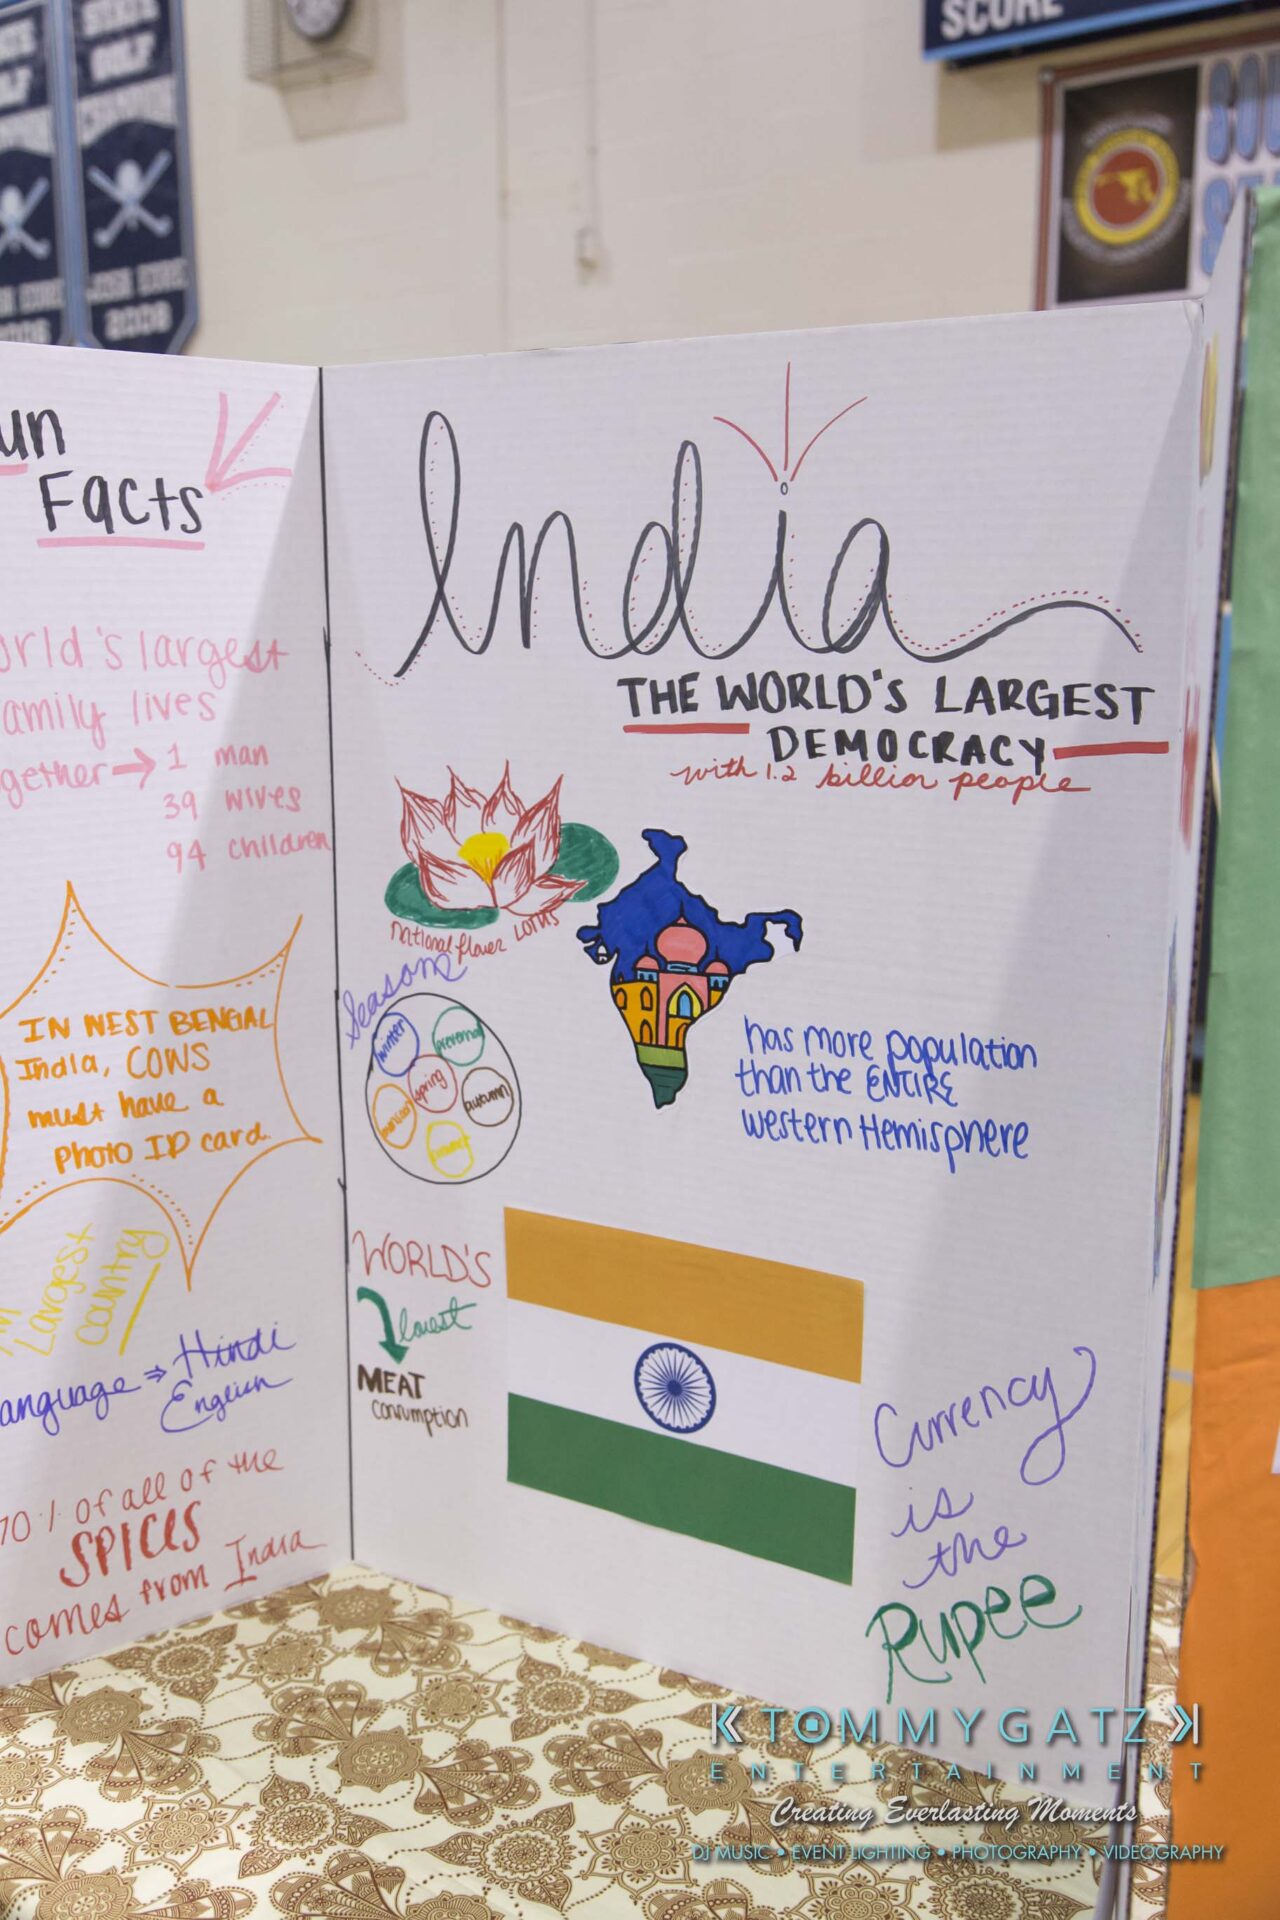 STATE
GOLF
CHAMPION
2006
SCORE
un
Facts
orld's largest
amily lives
gether → 1 man
39 wives
94 children
IN WEST BENGAL
India, COWS
must have a
photo ID card.
Largest
country
anguage ⇒ Hindi
English
70% of all of the
SPICES
comes from India
India
THE WORLD'S LARGEST
DEMOCRACY
with 1.2 billion people
National flower LOTUS
Seasons
winter
prevernal
spring
autumn
monsoon
summer
has more population
than the ENTIRE
western Hemisphere
WORLD'S
lowest
MEAT
consumption
Currency
is
the
Rupee
TOMMY GATZ
ENTERTAINMENT
Creating Everlasting Moments
DJ MUSIC • EVENT LIGHTING • PHOTOGRAPHY • VIDEOGRAPHY